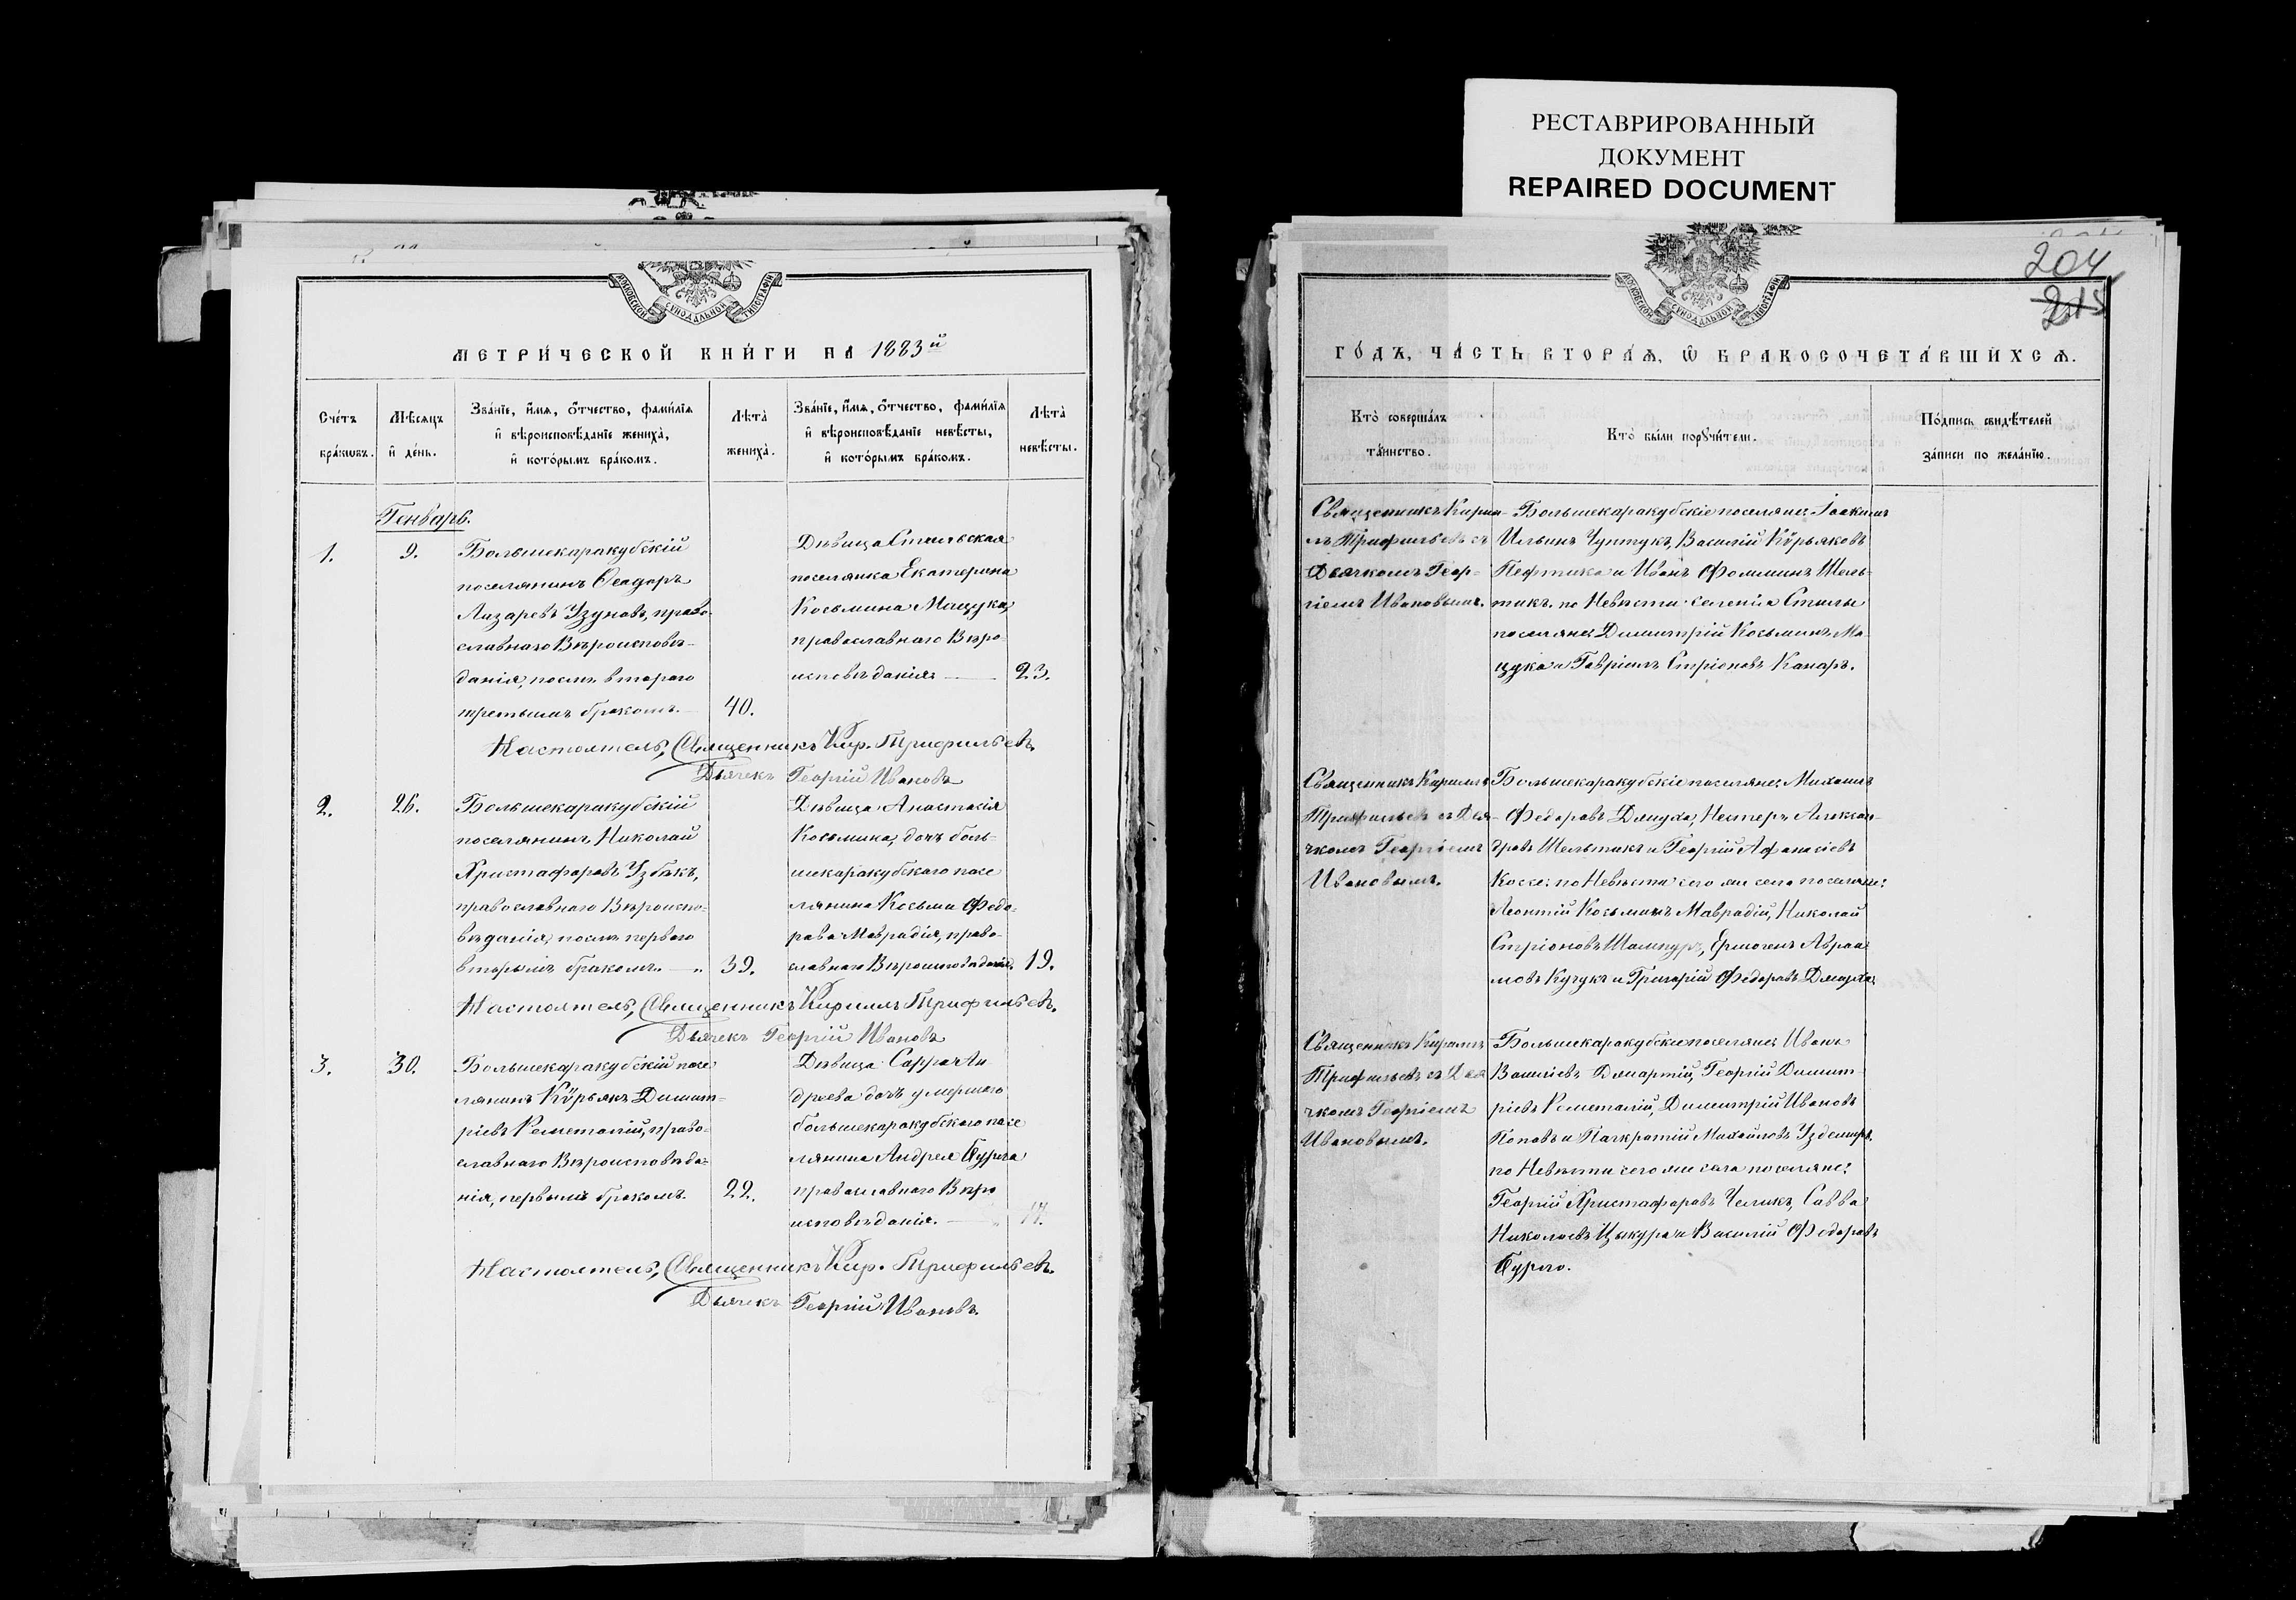 РЕСТАВРИРОВАННЫЙ
ДОКУМЕНТ
REPAIRED DOCUMENT
МОСКОВСКОЙ СѴНОДАЛЬНОЙ ТИПОГРАФІИ
МЕТРИ́ЧЕСКОЙ КНИ́ГИ НА 1883й
Сче́тъ
бра́ковъ.
Мѣсяцъ
и҆ де́нь.
Зва́нїе, и҆́мѧ, ѻ҆́тчество, фами́лїѧ
и҆ вѣроисповѣ́данїе жениха̀,
и҆ кото́рымъ бра́комъ.
Лѣта̀
жениха̀.
Зва́нїе, и҆́мѧ, ѻ҆́тчество, фами́лїѧ
и҆ вѣроисповѣ́данїе невѣ́сты,
и҆ кото́рымъ бра́комъ.
Лѣта̀
невѣ́сты.
Генварь.
1.
9.
Большекаракубскій
поселянинъ Ѳеодоръ
Лазаревъ Узуновъ, право-
славнаго Вѣроисповѣ-
данія, послѣ втораго
третьимъ бракомъ.
40.
Дѣвица Стильская
поселянка Екатерина
Косьмина Мацука,
православнаго Вѣро
исповѣданія
23.
Настоятель, Священникъ Кир. Трифильевъ.
Дьячекъ Георгій Ивановъ
2.
26.
Большекаракубскій
поселянинъ Николай
Христофоровъ Узбекъ,
православнаго Вѣроиспо-
вѣданія, послѣ перваго
вторымъ бракомъ.
39.
Дѣвица Анастасія
Косьмина, дочь боль-
шекаракубскаго посе
лянина Косьмы Федо-
рова Маврадія, право-
славнаго Вѣроисповѣданія.
19.
Настоятель, Священникъ Кириллъ Трифильевъ.
Дьячекъ Георгій Ивановъ
3.
30.
Большекаракубскій посе
лянинъ Кѵрьякъ Димит-
ріевъ Кеметжій, право-
славнаго Вѣроисповѣда-
нія, первымъ бракомъ.
22.
Дѣвица Сарра Ан
дреева дочь умершаго
большекаракубскаго посе
лянина Андрея
православнаго Вѣро
исповѣданія.
17.
Настоятель, Священникъ Кир. Трифильевъ.
Дьячекъ Георгій Ивановъ.
204
215
МОСКОВСКОЙ СѴНОДАЛЬНОЙ ТИПОГРАФІИ
ГО́ДЪ, ЧА́СТЬ ВТОРА́Ѧ, Ѽ БРАКОСОЧЕТА́ВШИХСѦ.
Кто̀ соверша́лъ
та́инство.
Кто̀ бы́ли порꙋчи́тели.
По́дпись свидѣ́телей
за́писи по жела́нїю.
Священникъ Кирил-
лъ Трифильевъ съ
Дьячкомъ Геор-
гіемъ Ивановымъ.
Большекаракубскіе поселяне: Іоакимъ
Ильинъ Чунтукъ, Василій Кѵрьяковъ
Пефтика и Иванъ Фоминъ Шель-
тикъ. по Невѣсти: селенія Стилы
поселяне: Димитрій Косьминъ Ма-
цука и Гавріилъ Стріоновъ Канаръ.
Священникъ Кириллъ
Трифильевъ съ Дья-
чкомъ Георгіемъ
Ивановымъ.
Большекаракубскіе поселяне: Михаилъ
Федоровъ Несторъ Алексан-
дровъ Шельтикъ и Георгій Афанасіевъ
Коссе: по Невѣсти сего же села поселяне:
Леонтій Косьминъ Маврадій, Николай
Стріоновъ Ермогенъ Авраа
мовъ Кучукъ и Григорій Федоровъ
Священникъ Кириллъ
Трифильевъ съ Дья
чкомъ Георгіемъ
Ивановымъ.
Большекаракубскіе поселяне: Иванъ
Василіевъ Георгій Димит-
ріевъ Кеметжій, Димитрій Ивановъ
Поповъ и Панкратій Михайловъ Уздемиръ,
по Невѣсти сего же села поселяне:
Георгій Христофоровъ Челикъ, Савва
Николаевъ Цыкура и Василій Федоровъ